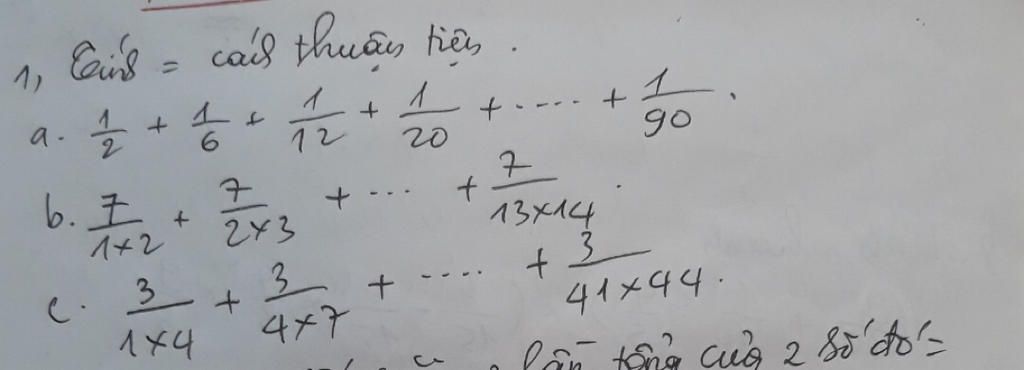 1, Tính = cách thuận tiện.
a. 1/2 + 1/6 + 1/12 + 1/20 + ..... + 1/90.
b. 7/1×2 + 7/2×3 + ... + 7/13×14.
c. 3/1×4 + 3/4×7 + .... + 3/41×44.
lần tổng của 2 số đó =